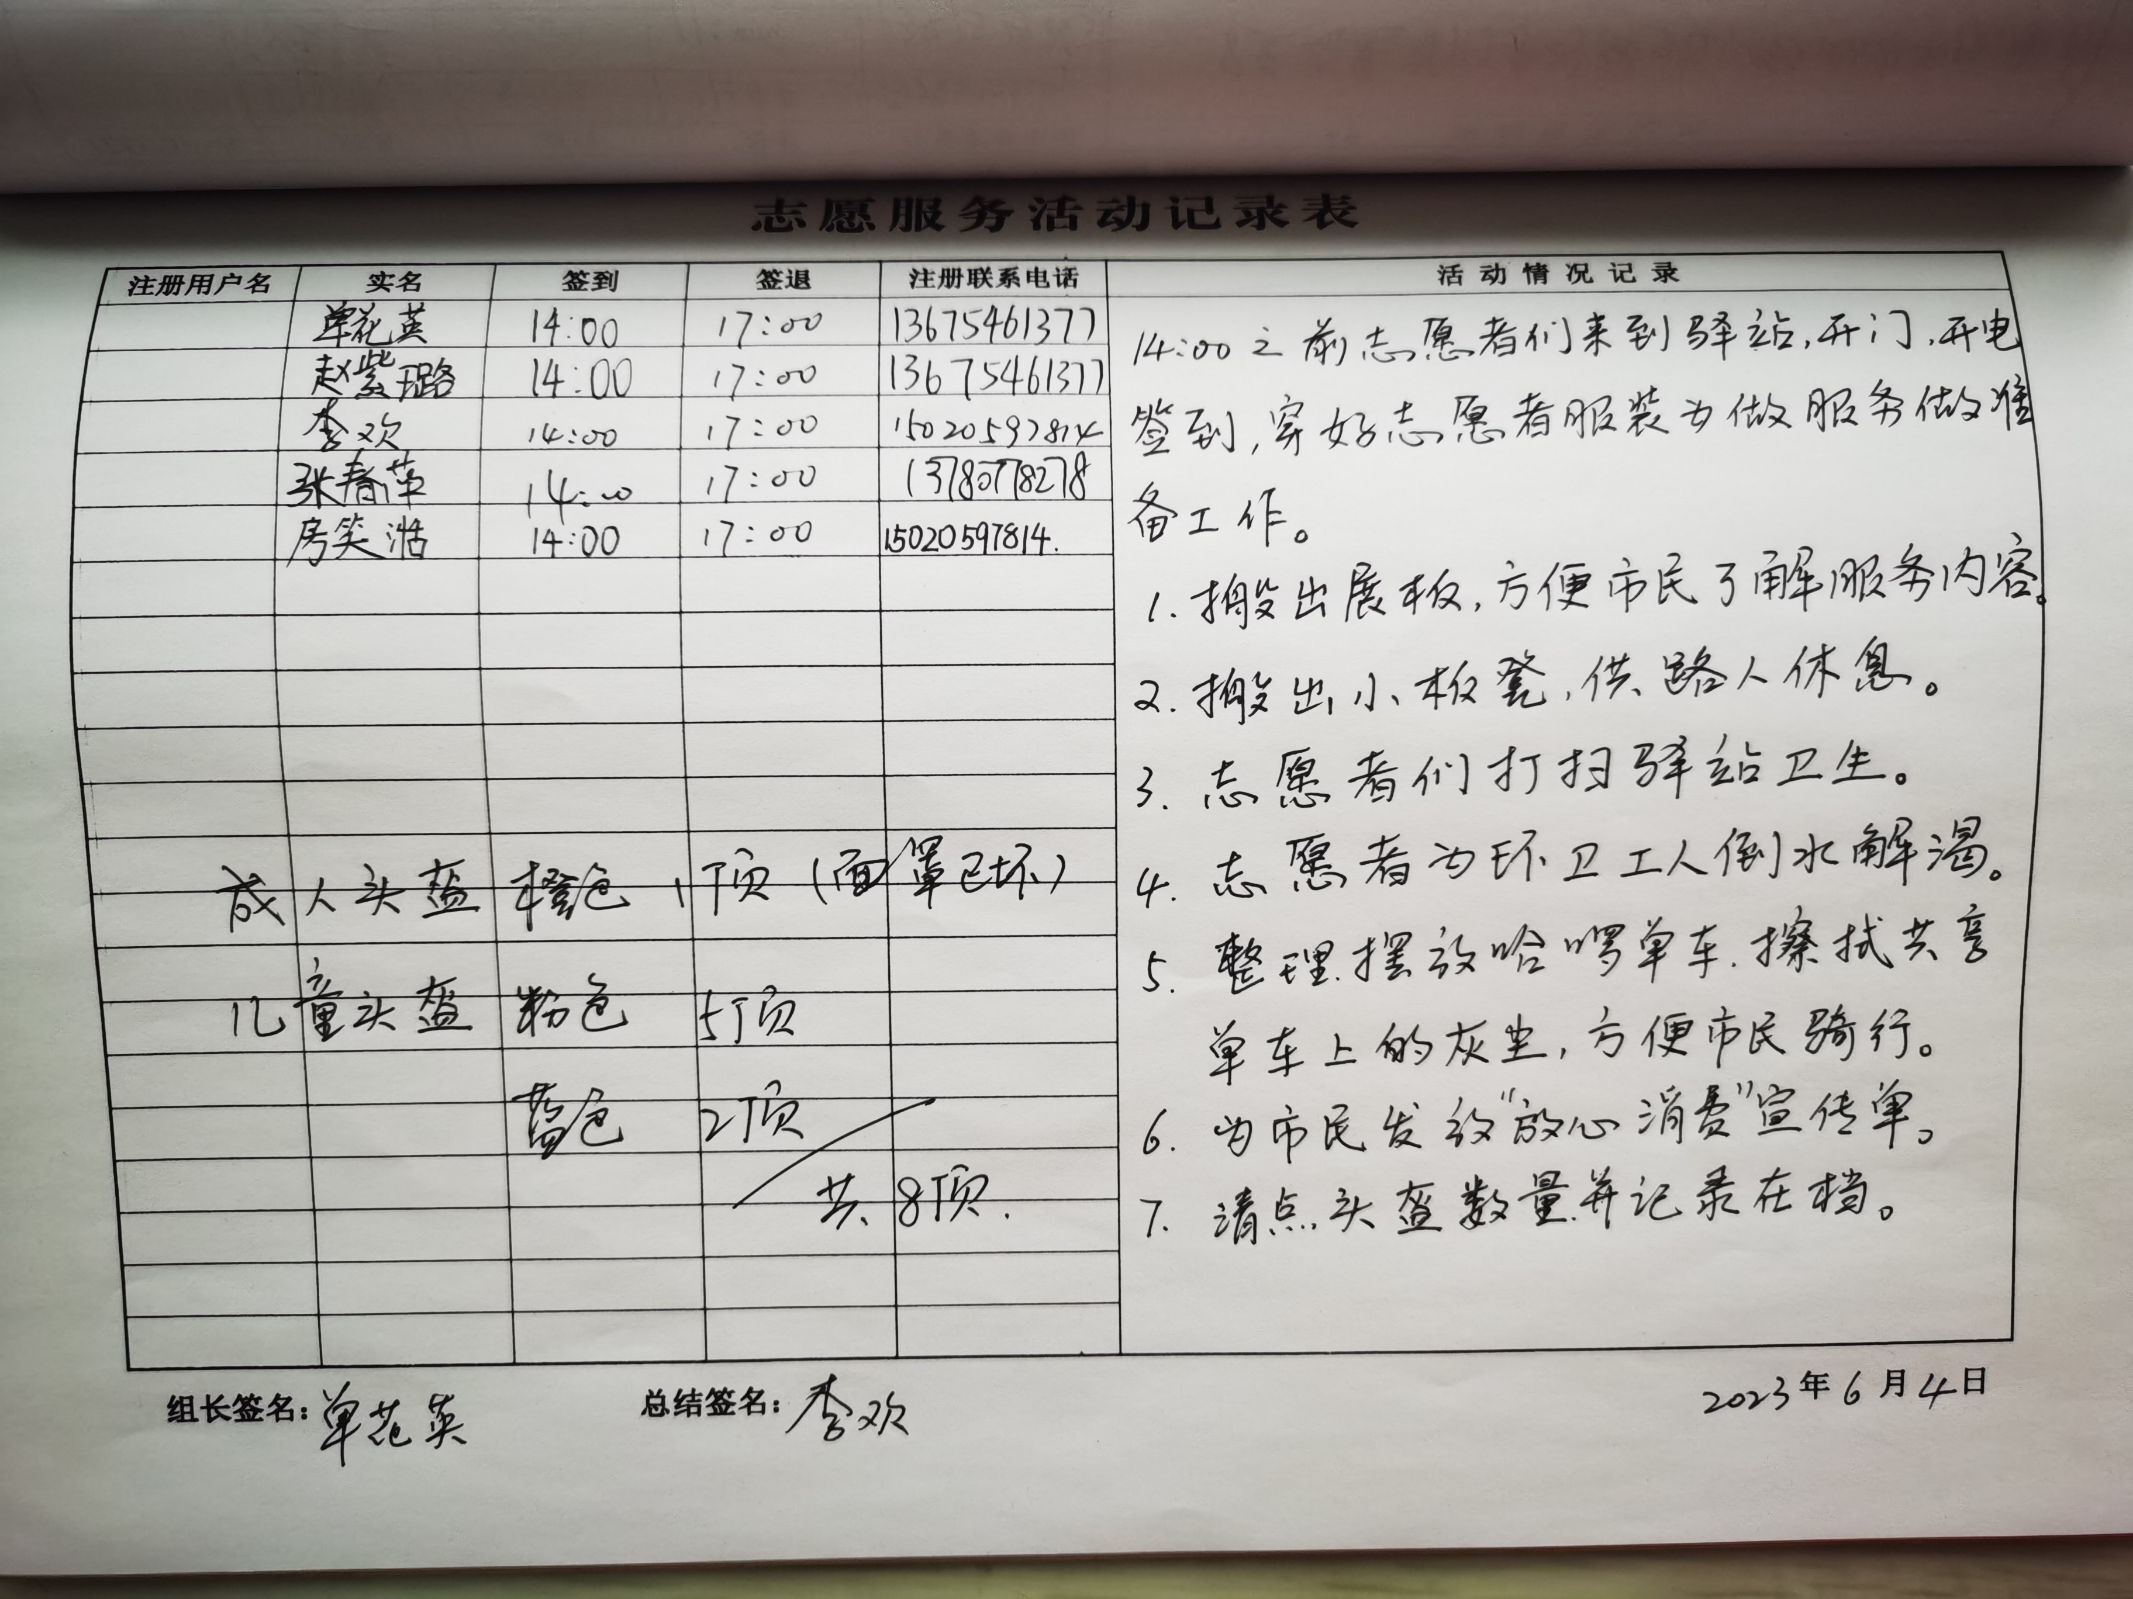 志愿服务活动记录表
注册用户名 实名 签到 签退 注册联系电话 活动情况记录
单花英 14:00 17:00 13675461377
赵紫璐 14:00 17:00 13675461377
李欢 14:00 17:00 15020597814
张春萍 14:00 17:00 13780778278
房笑湉 14:00 17:00 15020597814.
成人头盔 橙色 1顶(面罩已坏)
儿童头盔 粉色 5顶
蓝色 2顶
共8顶.
14:00之前志愿者们来到驿站,开门,开电
签到,穿好志愿者服装为做服务做准
备工作。
1. 搬出展板,方便市民了解服务内容。
2. 搬出小板凳,供路人休息。
3. 志愿者们打扫驿站卫生。
4. 志愿者为环卫工人倒水解渴。
5. 整理.摆放哈啰单车.擦拭共享
单车上的灰尘,方便市民骑行。
6. 为市民发放"放心消费"宣传单。
7. 清点头盔数量并记录在档。
组长签名:单花英 总结签名:李欢 2023年6月4日